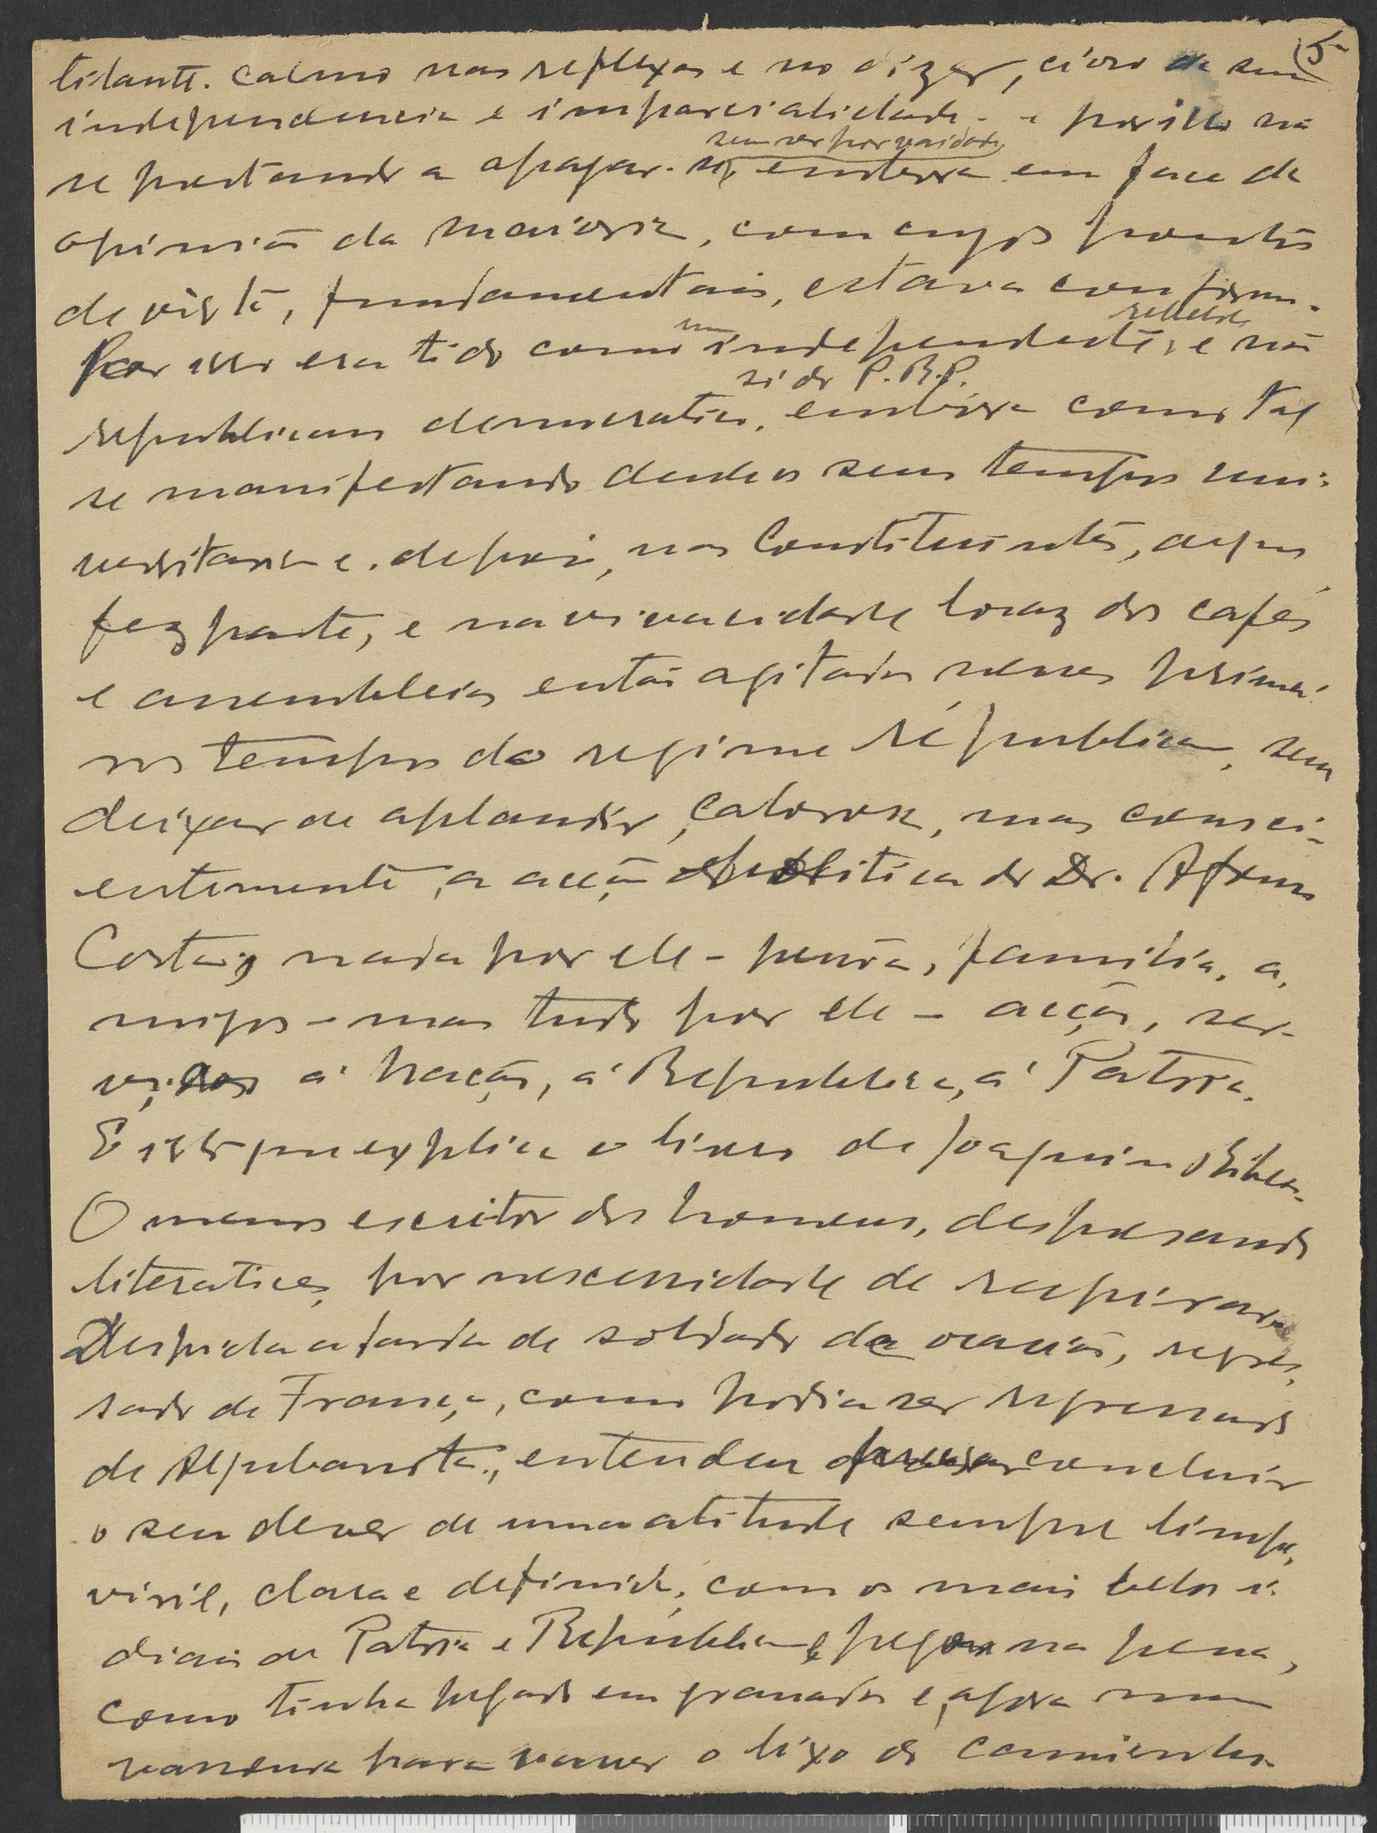 5
tilante. Calmo nas reflexões e no dizer, cioso da sua
independencia e imparcialidade - e por isso não
sem ser por vaidade
se prestando a apagar-se, embora em face da
opinião da maioria, com cujos pontos
de vista, fundamentais, estava conforme.
um rebelde
Por isso era tido como independente, e não
si do P.R.P.
republicano democratico, embora como tal
se manifestando desde os seus tempos uni-
versitarios e, depois, nas Constituintes, de que
fez parte, e na vivacidade loquaz dos cafés
e assembleias então agitadas nesses primei-
ros tempos do regime républicano, sem
deixar de aplaudir, calorosa, mas consci-
entemente, a acção politica do Dr. Afonso
Costa, nada por ele - pessoa, familia, a-
migos - mas tudo por ele - acção, ser-
viços á Nação, á Republica, á Patria.
E isto que explica o livro de Joaquim Ribeiro.
O menos escritor dos homens, despresando
literatices, por necessidade de respirar
Despida a farda de soldado da ocasião, regres-
sado de França, como podia ser regressado
de Aljubarrota, entendeu concluir
o seu dever de uma atitude sempre limpa,
viril, clara e definida, com os mais belos i-
diais de Patria e Républica, e pegou na pena,
como tinha pegado em granadas e, agora numa
vassoura para varrer o lixo do caminho.